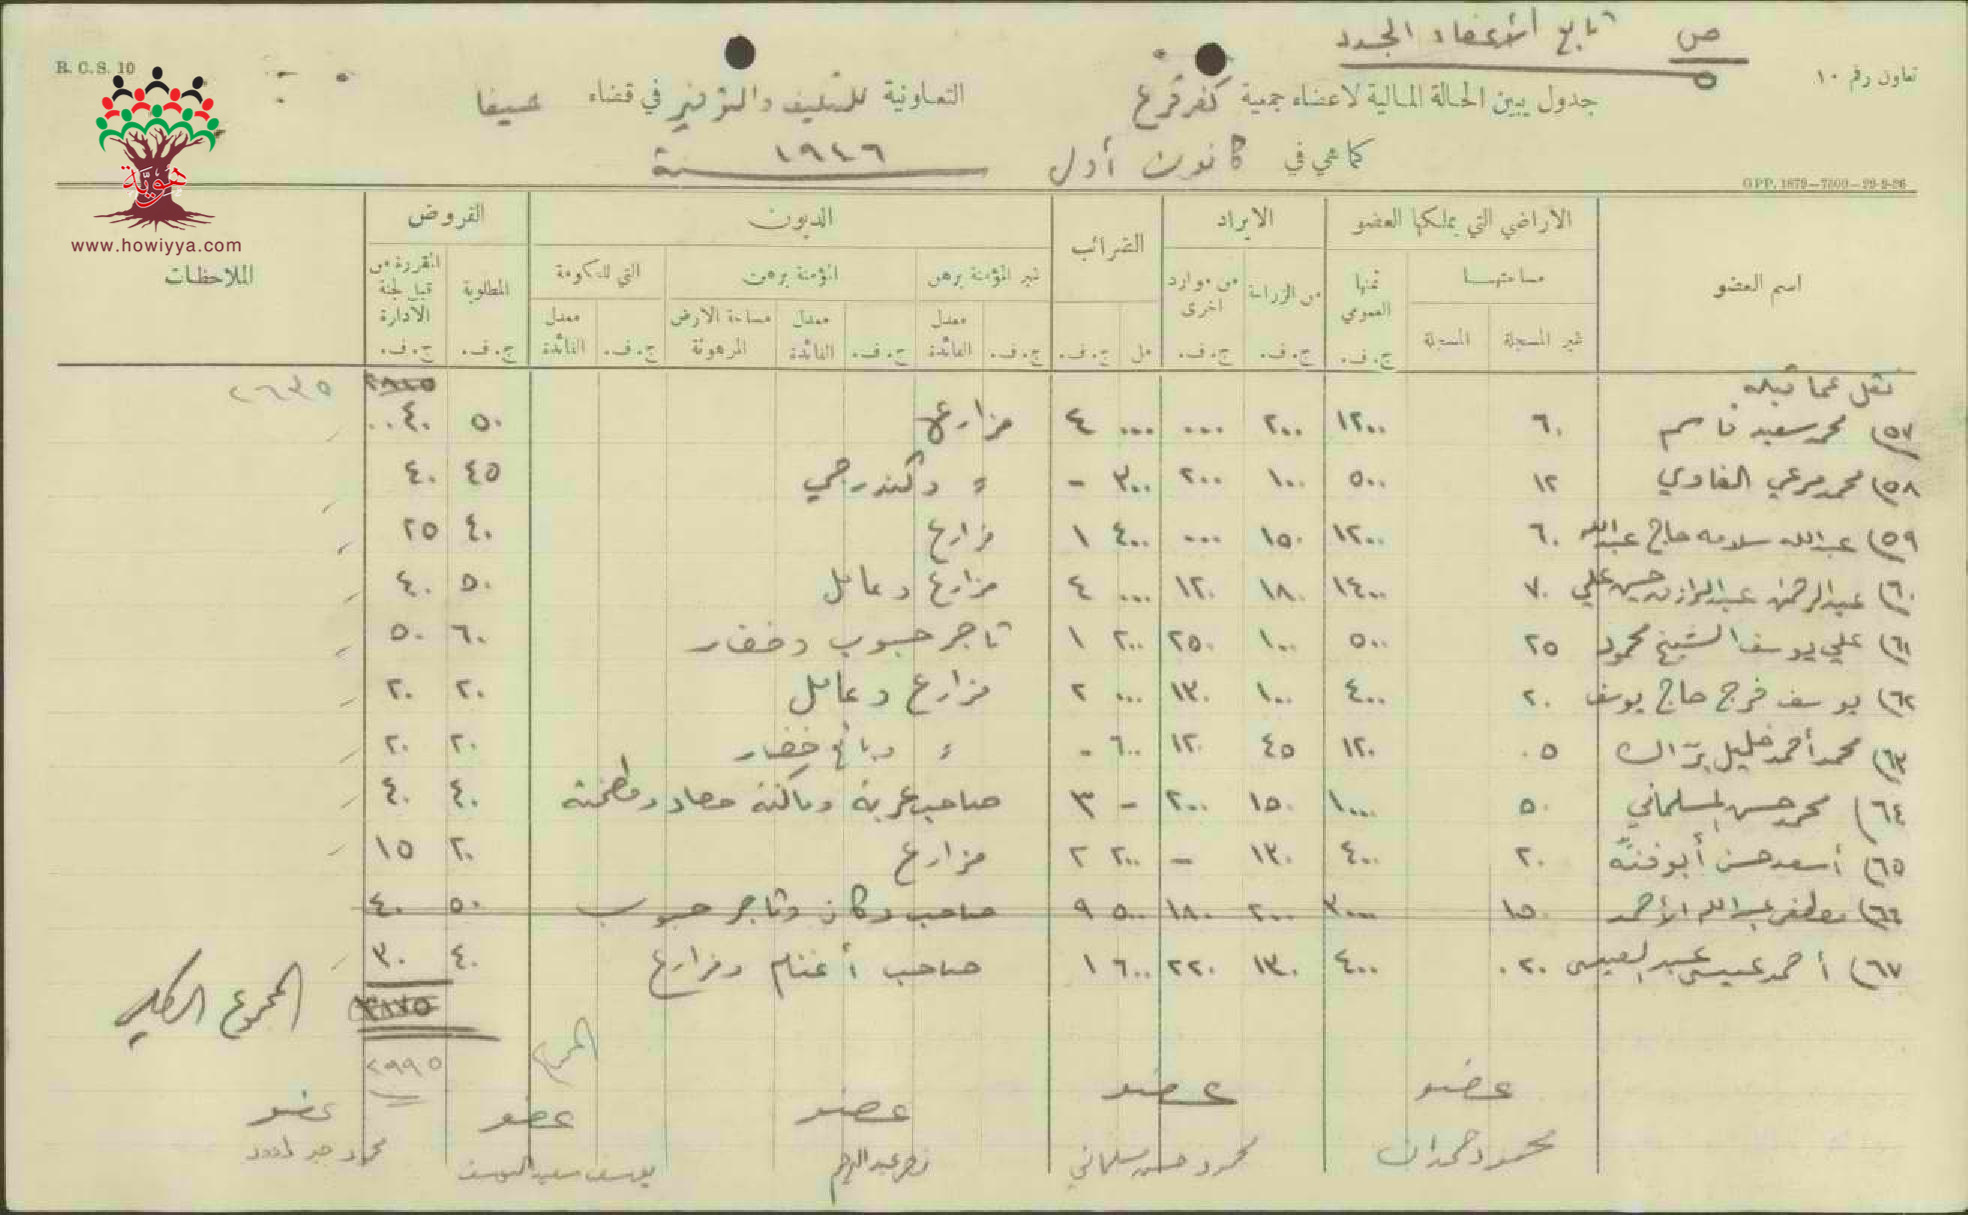 ص ٥ تابع الأعضاء الجدد
R. C. S. 10
تعاون رقم ١٠
جدول يبين الحالة المالية لاعضاء جمعية كفر قرع التعاونية للتسليف والتوفير في قضاء حيفا
كما هي في كانون أول سنة ١٩٤٦
GPP. 1879—7500—29-9-36
www.howiyya.com
اسم العضو الاراضي التي يملكها العضو الايراد الضرائب الديون القروض الملاحظات
مساحتها ثمنها العمومي من الزراعة من موارد اخرى غير المؤمنة برهن المؤمنة برهن التي للحكومة المطلوبة المقررة من قبل لجنة الادارة
غير المسجلة المسجلة ج. ف. ج. ف. ج. ف. مل ج. ف. ج. ف. معدل الفائدة ج. ف. معدل الفائدة مساحة الارض المرهونة ج. ف. معدل الفائدة ج. ف. ج. ف.
نقل عما قبله ٢٦٣٥
٥٧) محمد سعيد قاسم ٦٠ ١٢٠٠ ٢٠٠ ٠٠٠ ٠٠٠ ٤ مزارع ٥٠ ٤٠
٥٨) محمد مرعي الفاوي ١٢ ٥٠٠ ١٠٠ ٢٠٠ ٣٠٠ - " وكندرجي ٤٥ ٤٠
٥٩) عبدالله سلامه حاج عبدالله ٦٠ ١٢٠٠ ١٥٠ ٠٠٠ ٤٠٠ ١ مزارع ٤٠ ٢٥
٦٠) عبدالرحمن عبدالرازق حسين علي ٧٠ ١٤٠٠ ١٨٠ ١٢٠ ٠٠٠ ٤ مزارع وعامل ٥٠ ٤٠
٦١) علي يوسف الشيخ محمود ٢٥ ٥٠٠ ١٠٠ ٢٥٠ ٢٠٠ ١ تاجر حبوب وخضار ٦٠ ٥٠
٦٢) يوسف فرج حاج يوسف ٢٠ ٤٠٠ ١٠٠ ١٣٠ ٠٠٠ ٢ مزارع وعامل ٢٠ ٢٠
٦٣) محمد أحمد خليل ٥ ١٢٠ ٤٥ ١٢٠ ٦٠٠ - " وبائع خضار ٢٠ ٢٠
٦٤) محمد حسن المسلماني ٥٠ ١٠٠٠ ١٥٠ ٢٠٠ - ٣ صاحب عربة وماكنة حصاد ومطحنة ٤٠ ٤٠
٦٥) أسعد حسن أبو فنّه ٢٠ ٤٠٠ ١٣٠ - ٢٠٠ ٢ مزارع ٢٠ ١٥
٦٦) مصطفى عبدالله الأحمد ١٥٠ ٣٠٠٠ ٢٠٠ ١٨٠ ٥٠٠ ٩ صاحب دكان وتاجر حبوب ٥٠ ٤٠
٦٧) أحمد عيسى عبد العيسى ٢٠ ٤٠٠ ١٣٠ ٢٢٠ ٦٠٠ ١ صاحب أغنام ومزارع ٤٠ ٣٠
المجموع الكلي
٢٩٩٥
عضو عضو عضو عضو عضو
محمود حمدان محمود حسن مسلماني يوسف سعيد اليوسف